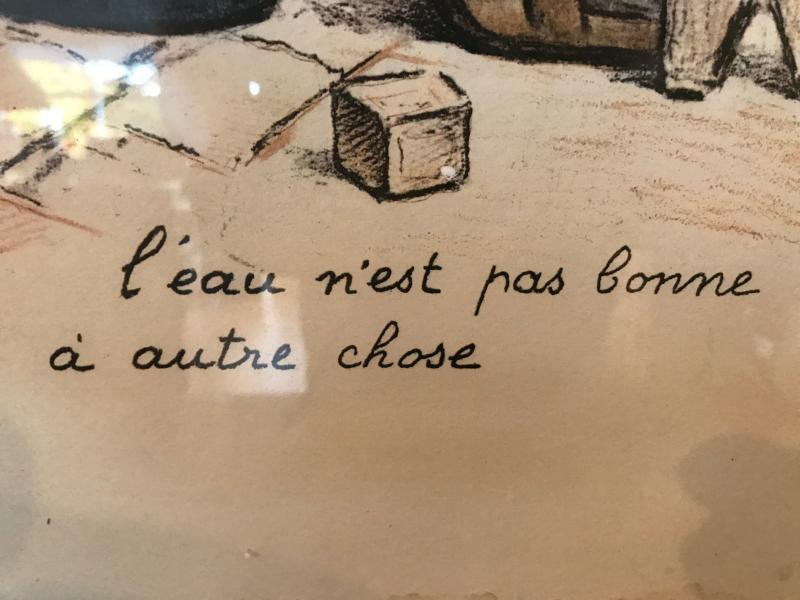 l'éau n'est pas bonne
à autre chose